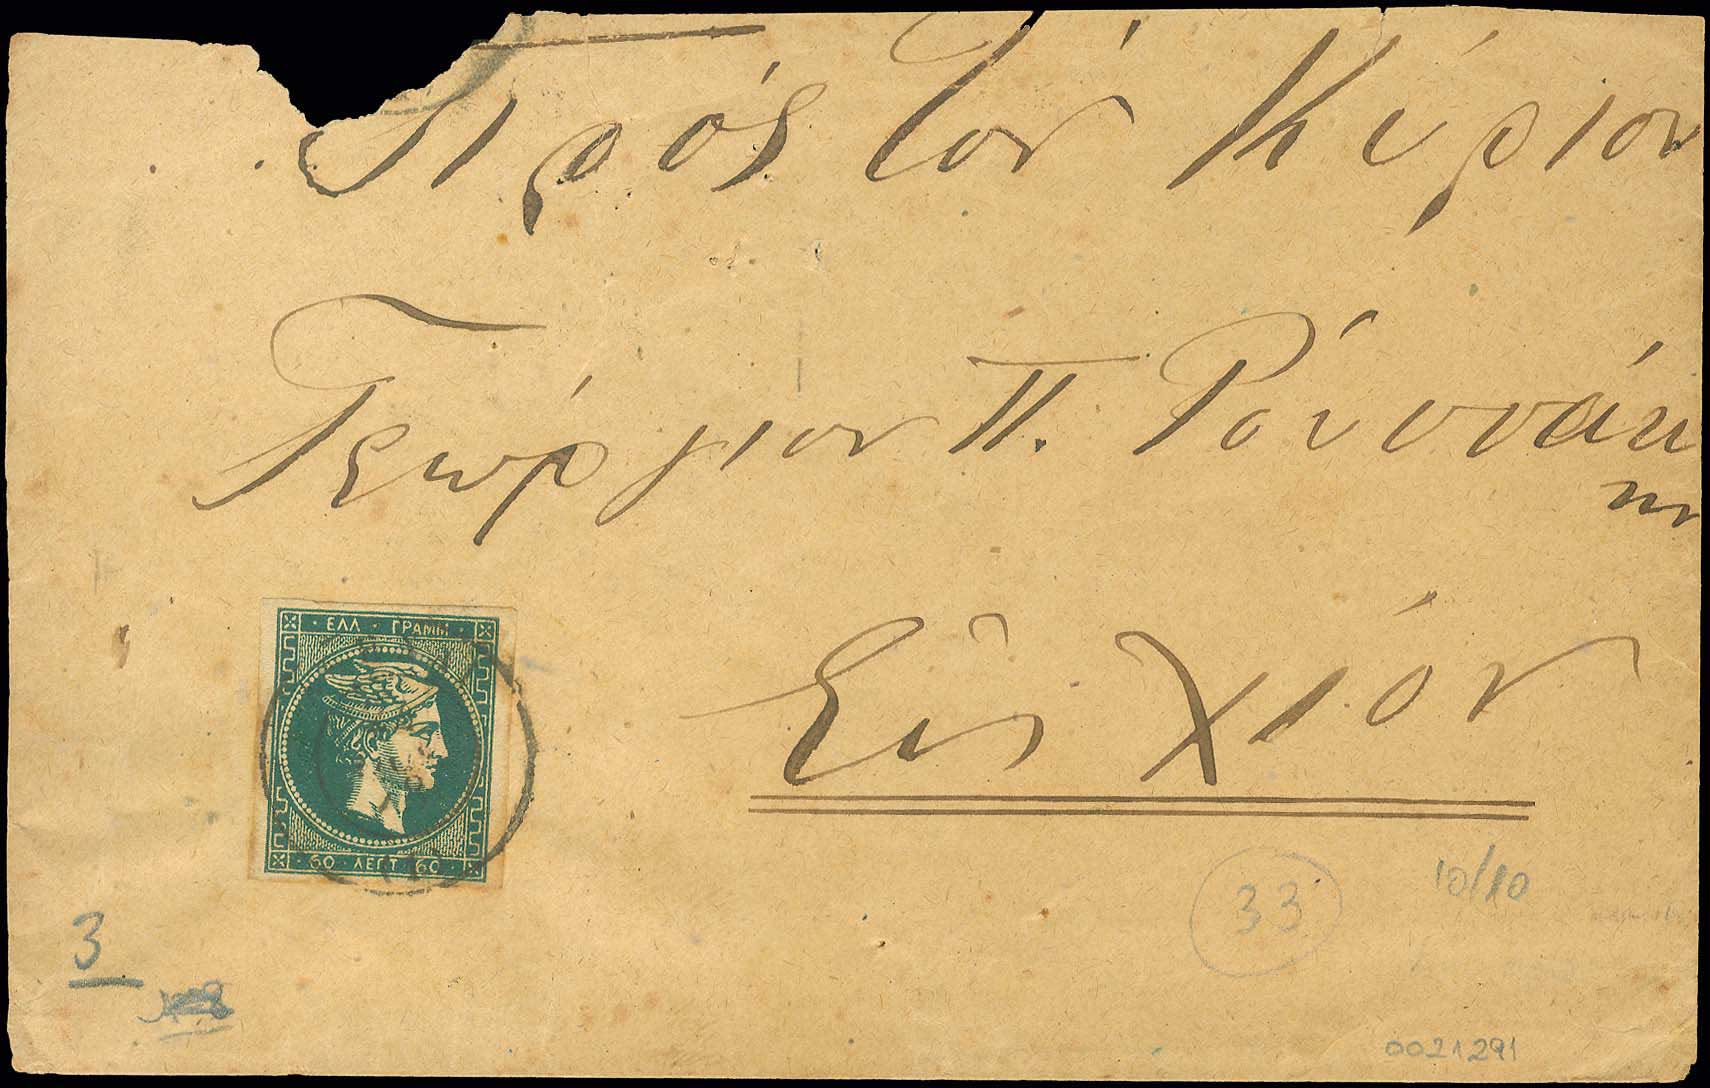 Πρός τόν Κύριον
Γεώργιον Π.
Εἰς Χίον
ΕΛΛ · ΓΡΑΜΜ
60 · ΛΕΠΤ · 60
33
10/10
3
0021291